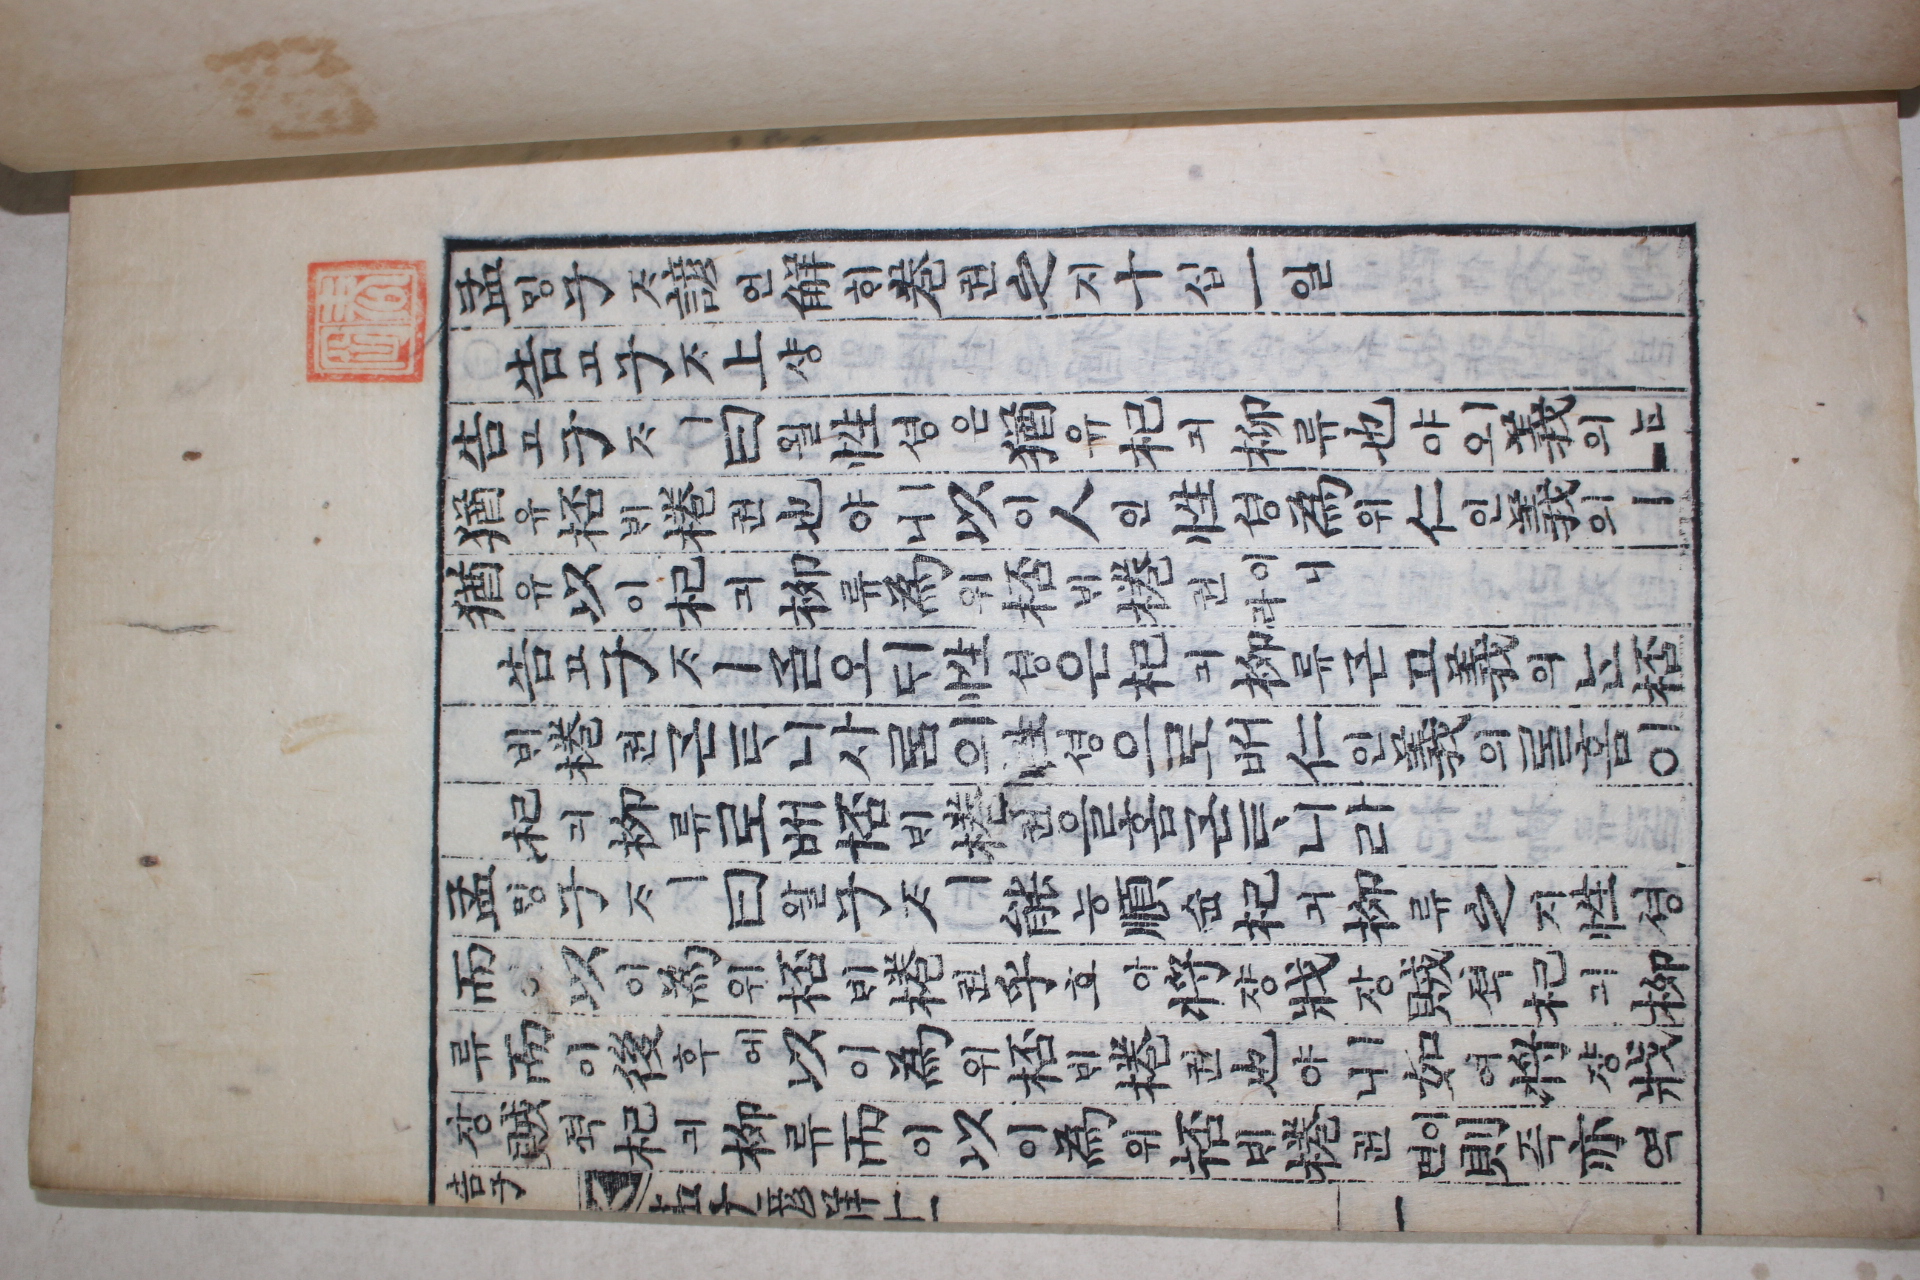 孟밍子ᄌᆞ諺언解ᄒᆡ卷권之지十십一일
告고子ᄌᆞ上샹
告고子ᄌᆞㅣ曰왈性셩은猶유杞긔柳류也야ㅣ오義의ᄂᆞᆫ
猶유桮ᄇᆡ棬권也야ㅣ니以이人인性셩為위仁인義의ㅣ
猶유以이杞긔柳류為위桮ᄇᆡ棬권이니라
告고子ᄌᆞㅣᄀᆞᆯ오ᄃᆡ性셩은杞긔柳류ᄀᆞᆮ고義의ᄂᆞᆫ桮
ᄇᆡ棬권ᄀᆞᆮᄐᆞ니사ᄅᆞᆷ의性셩으로ᄡᅥ仁인義의ᄅᆞᆯᄒᆞᆷ이
杞긔柳류로ᄡᅥ桮ᄇᆡ棬권을ᄒᆞᆷᄀᆞᆮᄐᆞ니라
孟밍子ᄌᆞㅣ曰왈子ᄌᆞㅣ能능順슌杞긔柳류之지性셩
而이以이為위桮ᄇᆡ棬권乎호아將쟝戕장賊젹杞긔柳
류而이後후에以이為위桮ᄇᆡ棬권也야ㅣ니如여將쟝戕
장賊젹杞긔柳류而이以이為위桮ᄇᆡ棬권이면則즉亦역
告子
孟子諺解十一
一